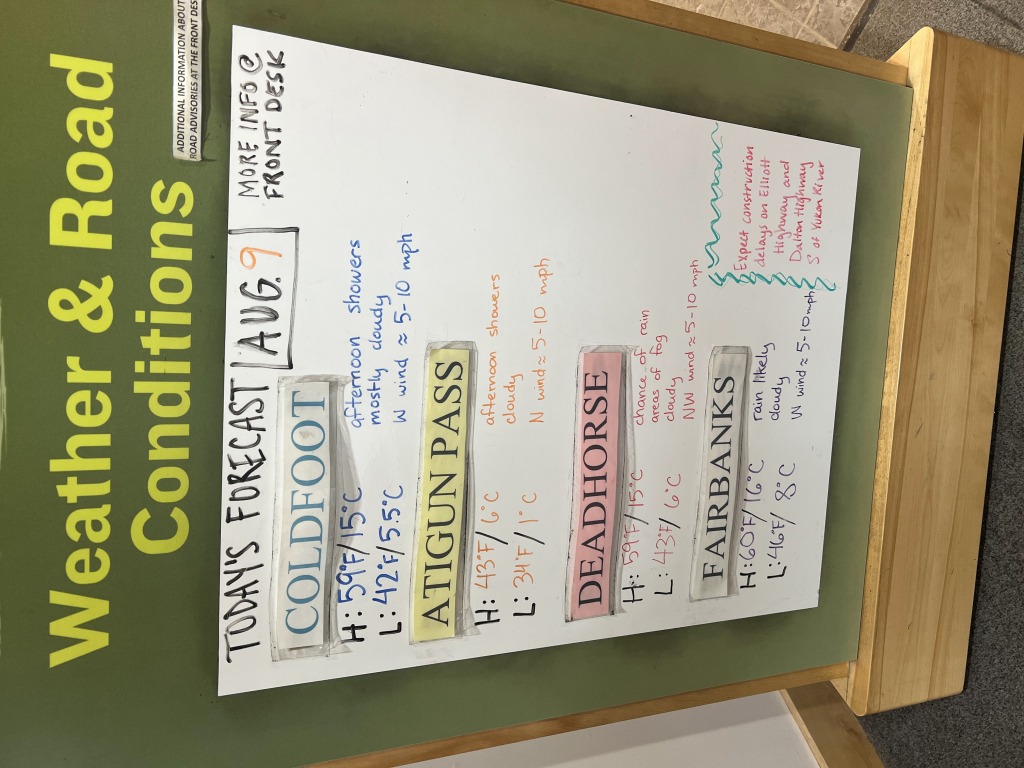 Weather & Road
Conditions
ADDITIONAL INFORMATION ABOUT
ROAD ADVISORIES AT THE FRONT DES
TODAY'S FORECAST AUG. 9
MORE INFO @
FRONT DESK
COLDFOOT
H: 59°F/15°C afternoon showers
mostly cloudy
L: 42°F/5.5°C W wind ≈ 5-10 mph
ATIGUN PASS
H: 43°F/6°C afternoon showers
cloudy
L: 34°F/1°C N wind ≈ 5-10 mph
DEADHORSE
H: 59°F/15°C chance of rain
areas of fog
L: 43°F/6°C cloudy
NW wind ≈ 5-10 mph
FAIRBANKS
H: 60°F/16°C rain likely
cloudy
L: 46°F/8°C W wind ≈ 5-10 mph
Expect construction
delays on Elliott
Highway and
Dalton Highway
S of Yukon River